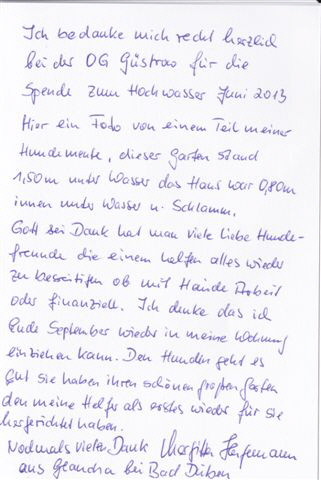 Ich bedanke mich recht herzlich
bei der OG Güstrow für die
Spende zum Hochwasser Juni 2013
Hier ein Foto von einem Teil meiner
Hundemeute, dieser Garten stand
1,50m unter Wasser das Haus war 0,80m
innen unter Wasser u. Schlamm.
Gott sei Dank hat man viele liebe Hunde-
freunde die einem helfen alles wieder
zu beseitigen ob mit Hände Arbeit
oder finanziell. Ich denke das ich
Ende September wieder in meine Wohnung
einziehen kann. Den Hunden geht es
gut sie haben ihren schönen großen Garten
den meine Helfer als erstes wieder für sie
hergerichtet haben.
Nochmals vielen Dank Margitta
aus Glaucha bei Bad Düben